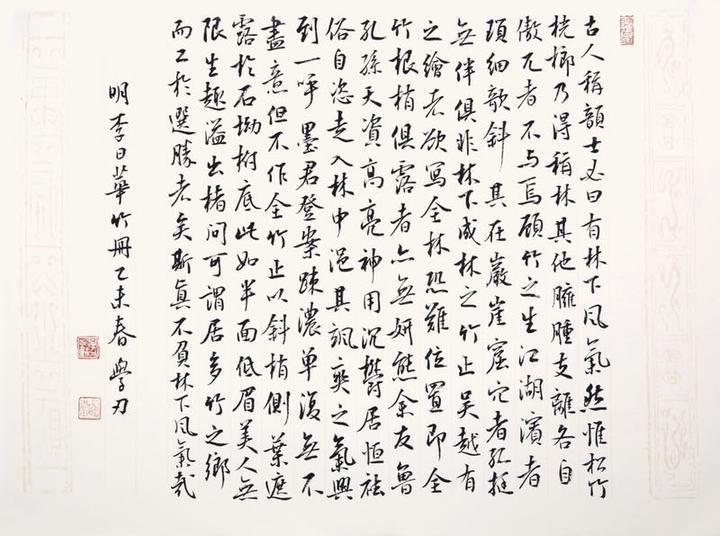 古人稱韻士必曰有林下风氣然惟松竹
桄榔乃得稱林其他臃腫支離各自
傲兀者不与焉顧竹之生江湖濱者
瑣細欹斜其在巖崖窟穴者孤挺
無伴俱非林下成林之竹止吴越有
之繪者欲寫全林恐難位置即全
竹根梢俱露者亦無妍態余友魯
孔孫天資高亮神用沉鬱居恒祛
俗自恣走入林中浥其颯爽之氣興
到一呼墨君登案疎濃單復無不
盡意但不作全竹止以斜梢側葉遮
露於石坳樹底此如半面低眉美人無
限生趣溢出楮間可謂居多竹之鄉
而工於選勝者矣斯真不負林下风氣哉
明李日華竹冊乙未春學刀